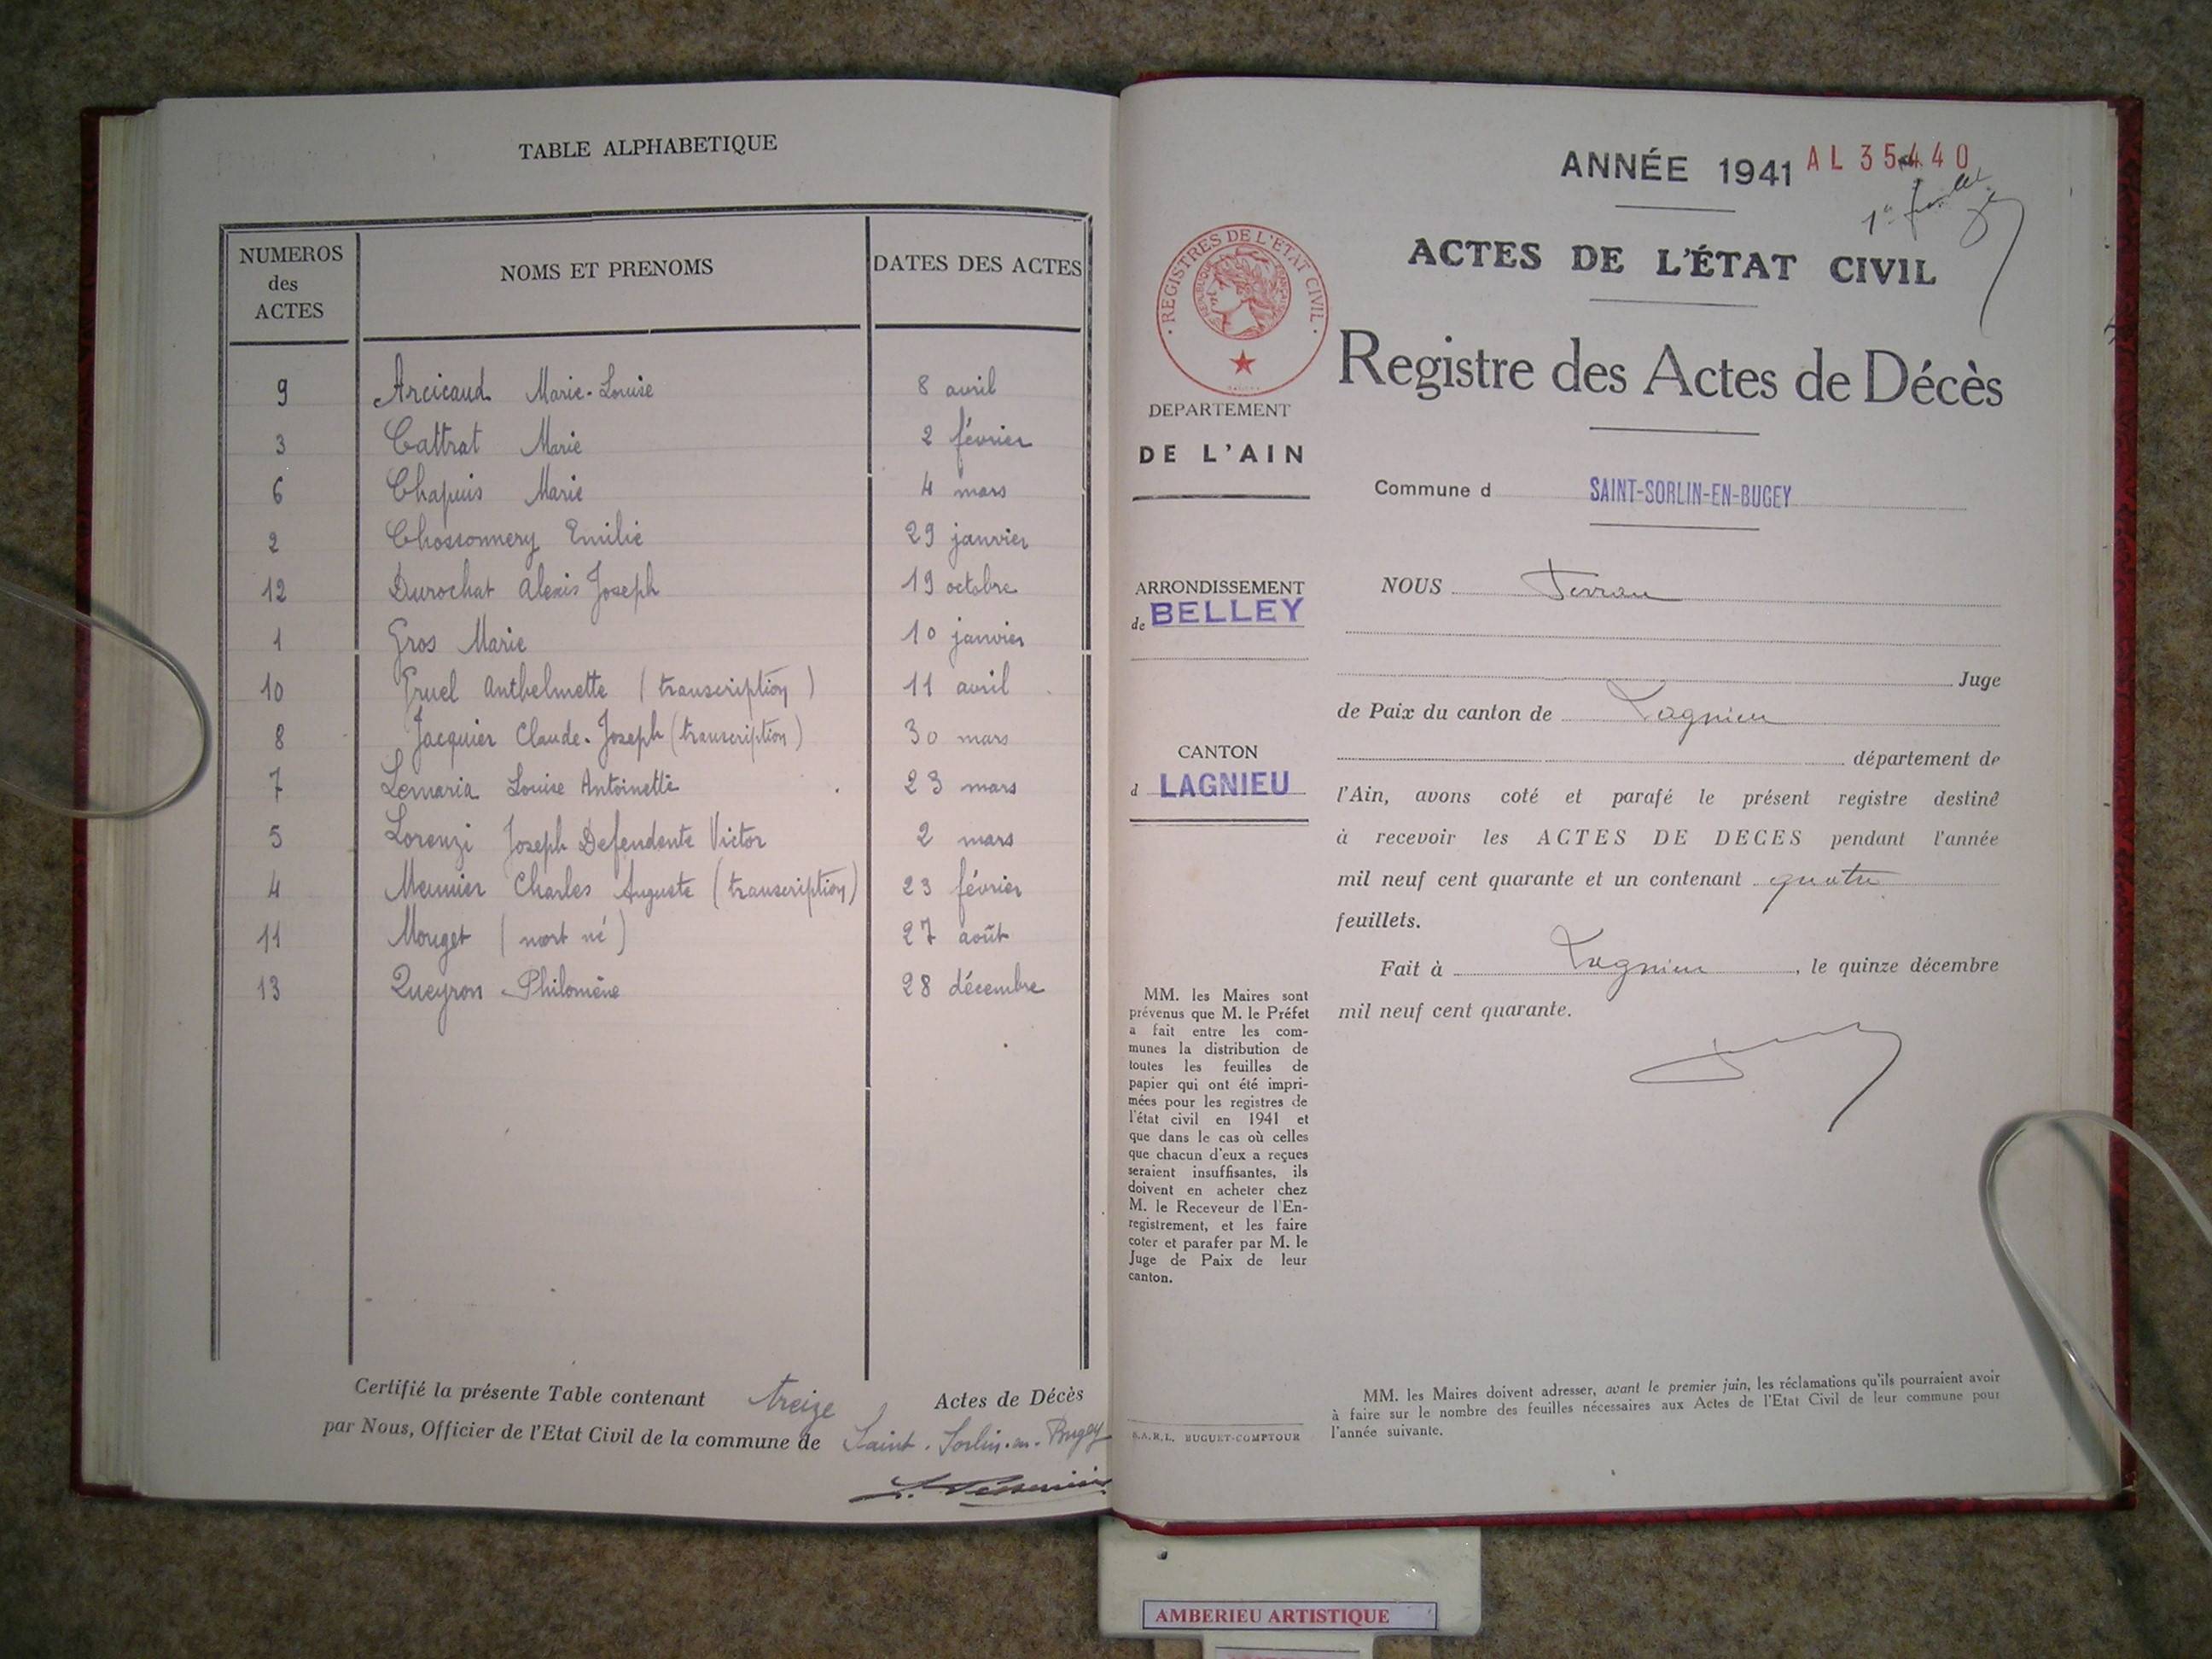 TABLE ALPHABETIQUE
NUMEROS des ACTES NOMS ET PRENOMS DATES DES ACTES
9 Arcicaud Marie-Louise 8 avril
3 Cattrat Marie 2 février
6 Chapuis Marie 4 mars
2 Chossonnery Emilie 29 janvier
12 Durochat Alexis Joseph 19 octobre
1 Gros Marie 10 janvier
10 Gruel Anthelmette (transcription) 11 avril
8 Jacquier Claude-Joseph (transcription) 30 mars
7 Lemaria Louise Antoinette 23 mars
5 Lorenzi Joseph Defendente Victor 2 mars
4 Meunier Charles Auguste (transcription) 23 février
11 Mouget (mort né) 27 août
13 Queyron Philomène 28 décembre
Certifié la présente Table contenant treize Actes de Décès
par Nous, Officier de l'Etat Civil de la commune de Saint-Sorlin-en-Bugey
ANNÉE 1941 AL 35440
ACTES DE L'ÉTAT CIVIL
REGISTRES DE L'ETAT CIVIL
REPUBLIQUE FRANÇAISE
Registre des Actes de Décès
DEPARTEMENT
DE L'AIN
Commune d SAINT-SORLIN-EN-BUGEY
ARRONDISSEMENT
de BELLEY
CANTON
d LAGNIEU
MM. les Maires sont
prévenus que M. le Préfet
a fait entre les com-
munes la distribution de
toutes les feuilles de
papier qui ont été impri-
mées pour les registres de
l'état civil en 1941 et
que dans le cas où celles
que chacun d'eux a reçues
seraient insuffisantes, ils
doivent en acheter chez
M. le Receveur de l'En-
registrement, et les faire
coter et parafer par M. le
Juge de Paix de leur
canton.
S.A.R.L. BUGUET-COMPTOUR
NOUS
Juge
de Paix du canton de Lagnieu
département de
l'Ain, avons coté et parafé le présent registre destiné
à recevoir les ACTES DE DECES pendant l'année
mil neuf cent quarante et un contenant quatre
feuillets.
Fait à Lagnieu, le quinze décembre
mil neuf cent quarante.
MM. les Maires doivent adresser, avant le premier juin, les réclamations qu'ils pourraient avoir
à faire sur le nombre des feuilles nécessaires aux Actes de l'Etat Civil de leur commune pour
l'année suivante.
AMBERIEU ARTISTIQUE